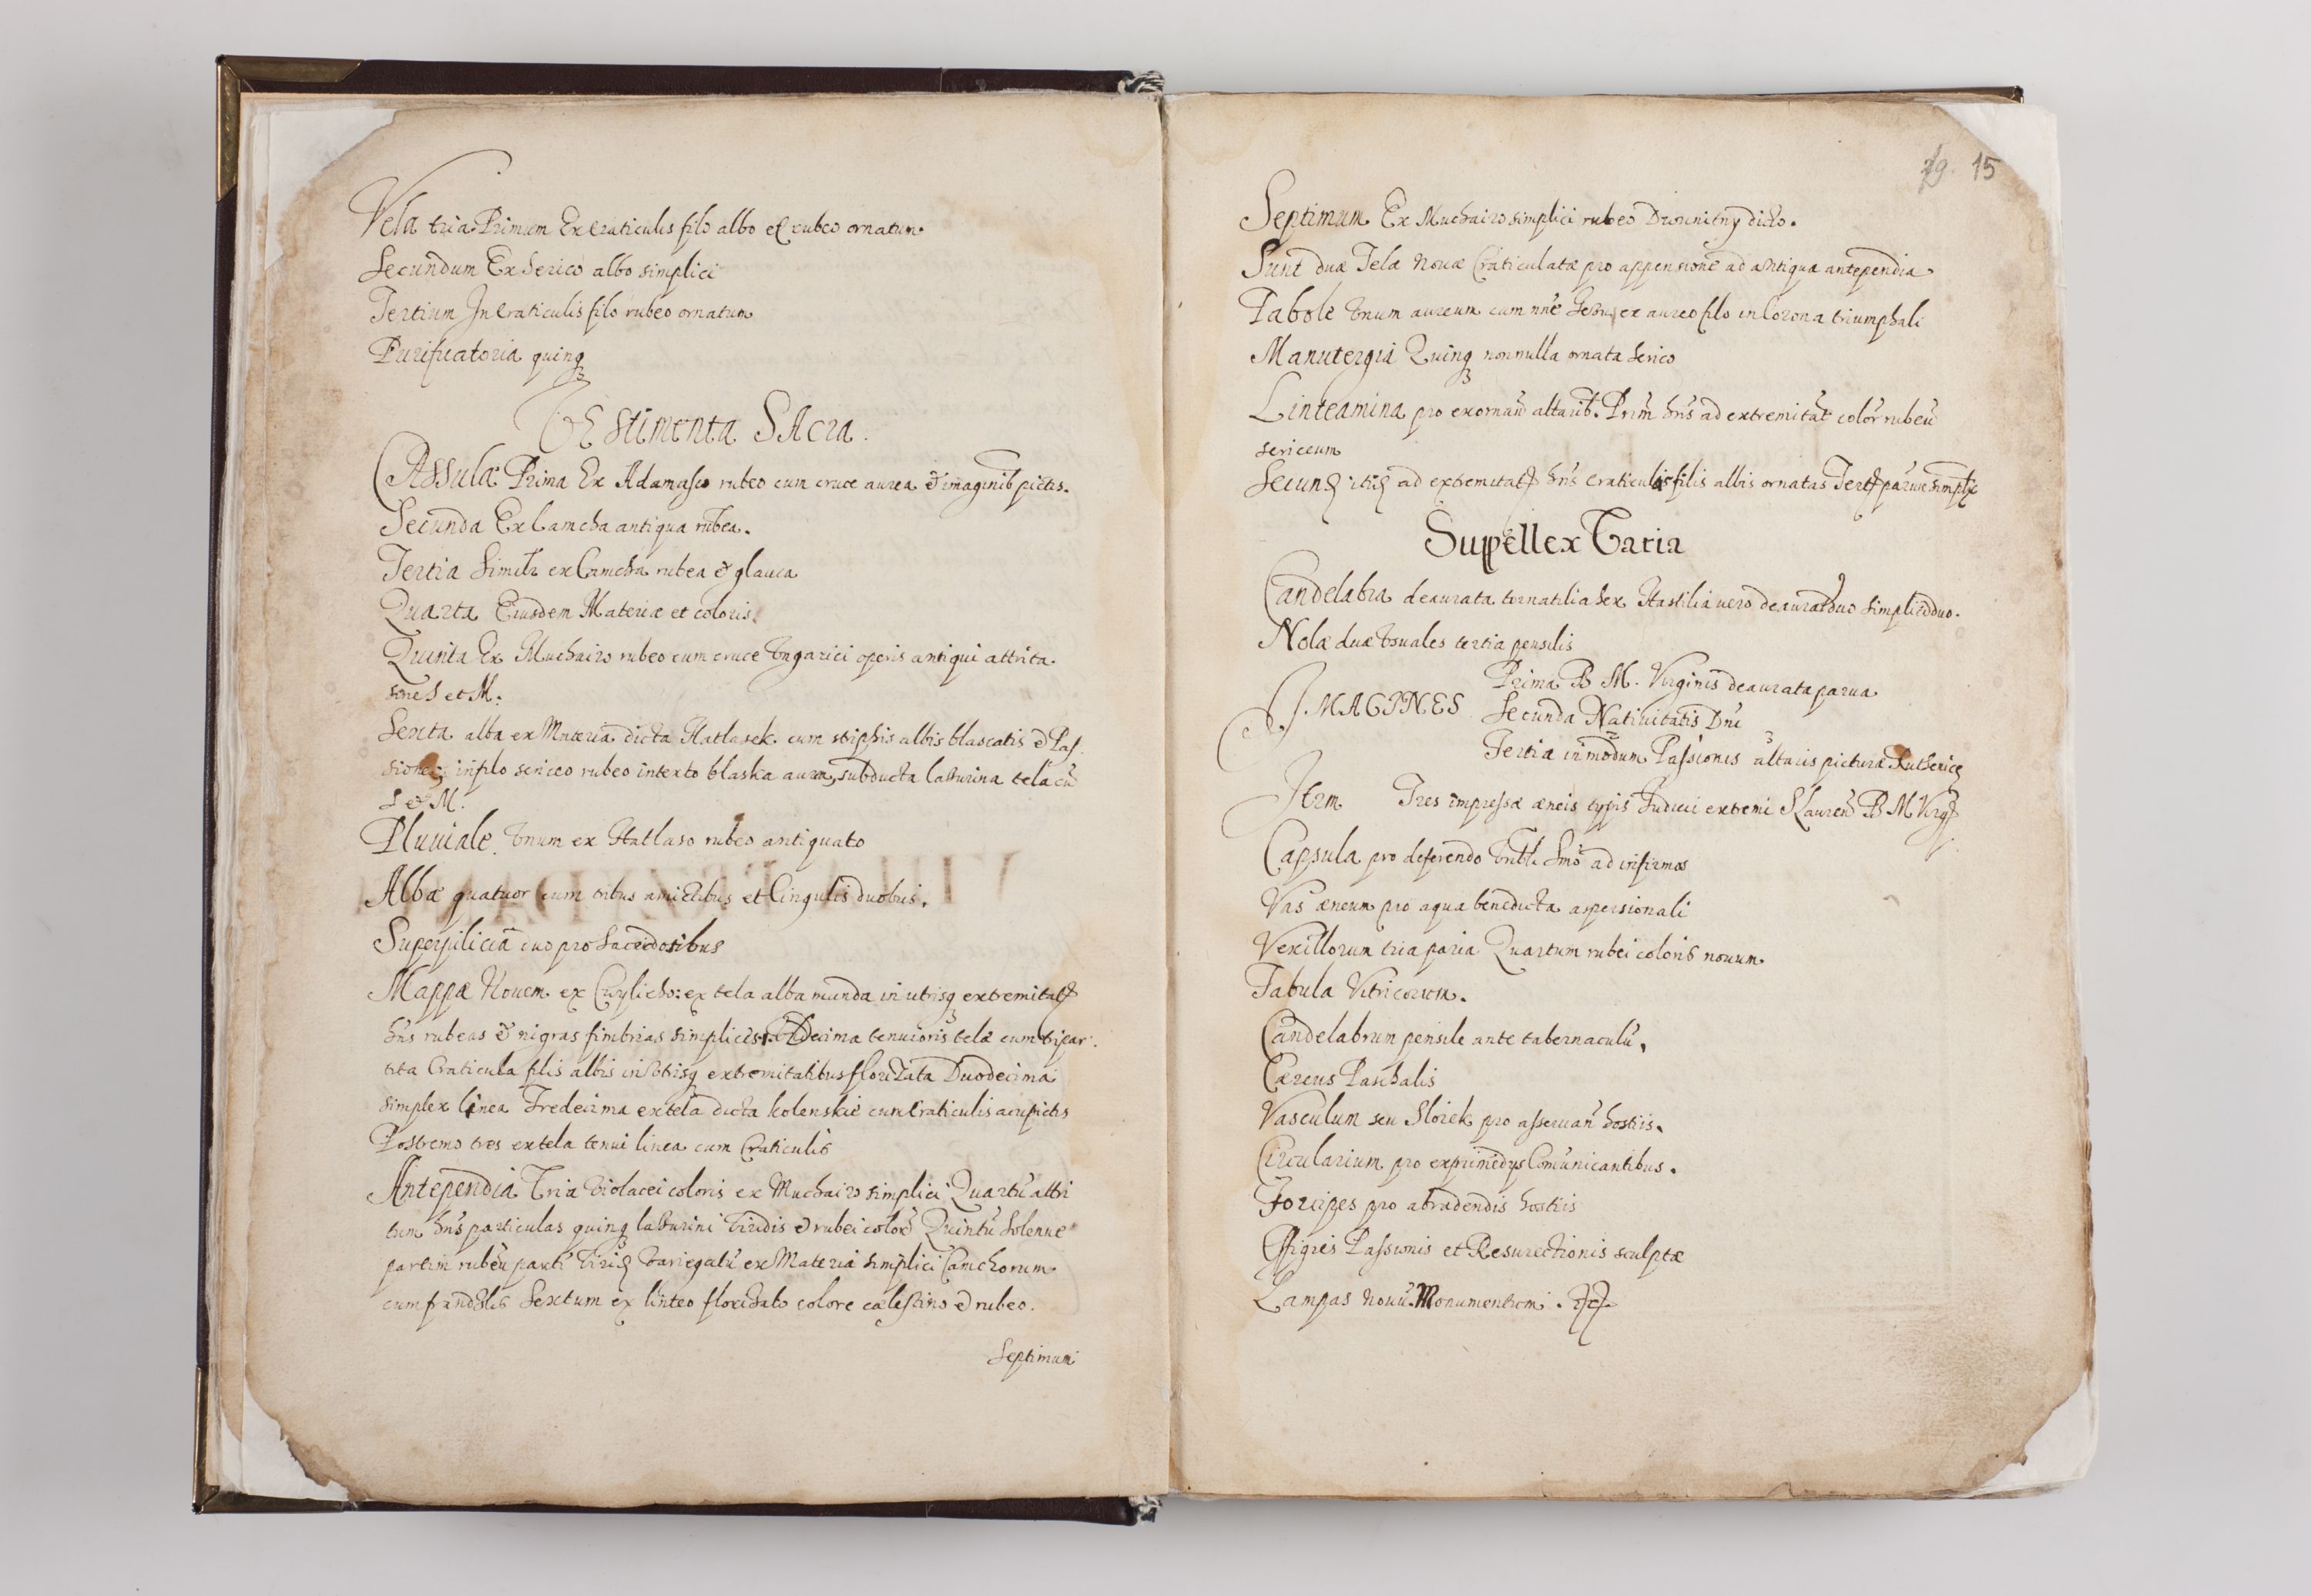 Vela tria. Primum Ex craticulis filo albo et rubeo ornatum
Secundum Ex serico albo simplici
Tertium In craticulis filo rubeo ornatum
Purificatoria quinq
VEstimenta SAcra.
CAssulæ Prima Ex Adamasco rubeo cum cruce aurea & imaginib pictis.
Secunda Ex Camcha antiqua rubea.
Tertia Similr ex Camcha rubea & glauca
Quarta Eiusdem Materiæ et coloris.
Quinta Ex Muchairo rubeo cum cruce Vngarici operis antiqui attrita.
sine S et M.
Sexta alba ex Materia dicta Hatlasek cum albis & Pas
in filo sericeo rubeo intexto blaska aurea, subducta lasurina tela cū
S & M.
Pluuiale Vnum ex Hatlaso rubeo antiquato
Albæ quatuor cum tribus amictibus et Cingulis duobus.
Superpilicia duo pro Sacerdotibus
Mappæ Nouem ex Cwylicho: ex tela alba munda in utrisq extremitat
hn̄s rubeas & nigras fimbrias simplices. Decima tenuioris telæ cum tripar
tita Craticula filis albis in Vtrisq extremitatibus florizata Duodecima
simplex linea Tredecima ex tela dicta kolenskie cum Craticulis acupictis
Postremo tres ex tela tenui linea cum Craticulis
Antependia Tria Violacei coloris ex Muchairo simplici Quartū attri
tum hn̄s particulas quinq lasurini Viridis & rubei color Quintū Solenne
partim rubeū parti variegatū ex Materia simplici Camchorum
cum Sextum ex linteo florisato colore cælestino & rubeo.
Septimum
29. 15
Septimum Ex Muchairo simplici rubeo dicto.
Sunt duæ Telæ Nouæ Craticulatæ pro appensione ad antiqua antependia
Pabole Vnum aureum cum nn̄e Jesu ex aureo filo in Corona triumphali
Manutergia Quinq nonnulla ornata Serico
Linteamina pro exornan̄ altarib. Prim̄ hn̄s ad extremitat color̄ rubeū
sericeum
Secun ad extremitat hn̄s craticulas filis albis ornatas Tert simplx
Supellex Varia
Candelabra deaurata tornatilia Sex Hastilia uero deaurat duo simplicia duo.
Nolæ duæ Vsuales tertia pensilis
IMAGINES
Prima B M. Virginis deaurata parua
Secunda Natiuitatis Dn̄i
Tertia in modum Passionis altaris pictura
Item Tres impressæ æneis typis Iudicii extremi S Lauren B M Virg
Capsula pro deferendo Smo ad infirmos
Vas æneum pro aqua benedicta aspersionali
Vexillorum tria paria Quartum rubei coloris nouum
Tabula Vitricorum.
Candelabrum pensile ante tabernaculū.
Cæreus Paschalis
Vasculum seu Sloiek pro asseruan̄ hostiis.
Circularium pro exprimēdys Comunicantibus.
Forcipes pro abradendis hostiis
Effigies Passionis et Resurectionis sculptæ
Lampas